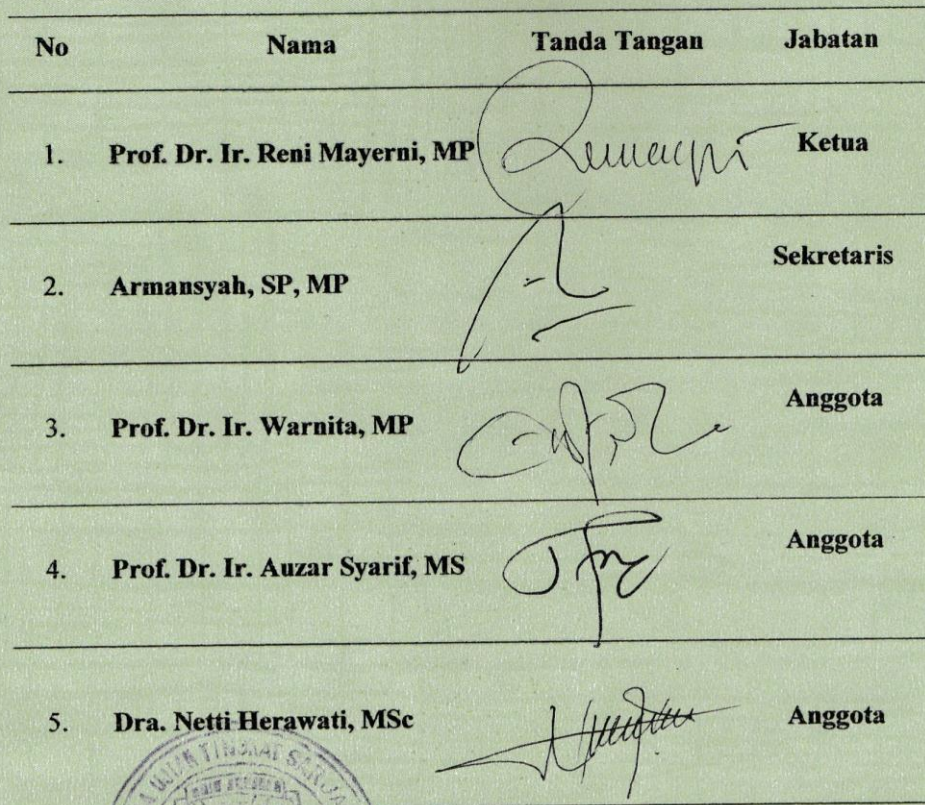 No Nama Tanda Tangan Jabatan
1. Prof. Dr. Ir. Reni Mayerni, MP Ketua
2. Armansyah, SP, MP Sekretaris
3. Prof. Dr. Ir. Warnita, MP Anggota
4. Prof. Dr. Ir. Auzar Syarif, MS Anggota
5. Dra. Netti Herawati, MSc Anggota
UJIAN TINGKAT